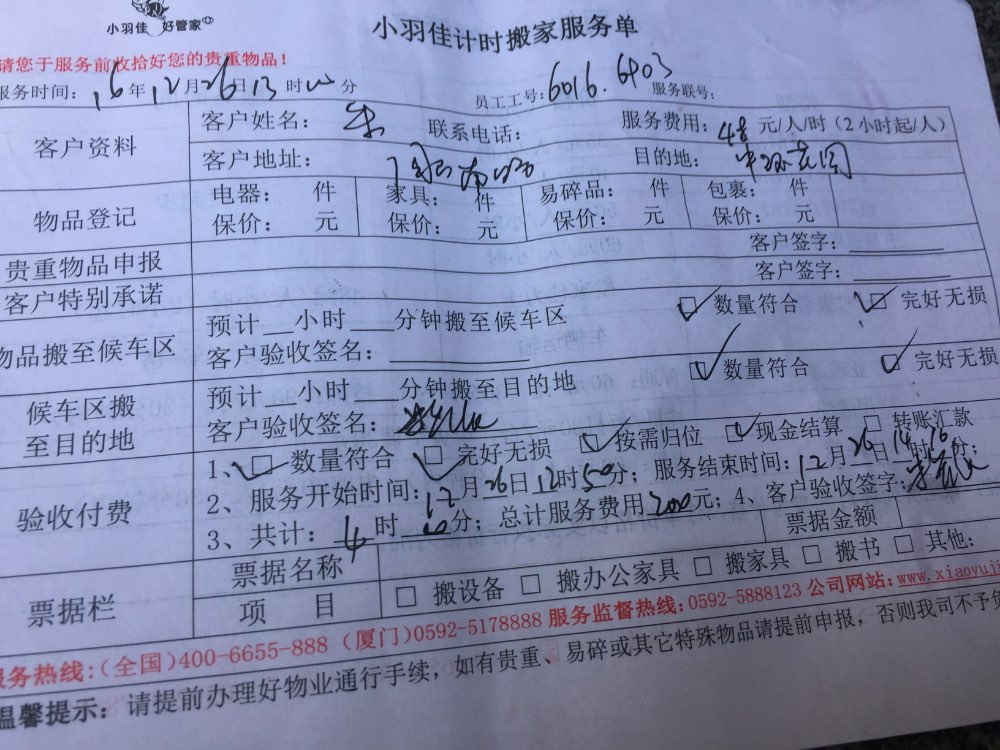 小羽佳 好管家
小羽佳计时搬家服务单
请您于服务前收拾好您的贵重物品！
服务时间：16年12月26日13时 分
员工工号：6016.6403 服务联号：
客户资料
客户姓名： 联系电话： 服务费用：48元/人/时（2小时起/人）
客户地址： 目的地：
物品登记
电器： 件 家具： 件 易碎品： 件 包裹： 件
保价： 元 保价： 元 保价： 元 保价： 元
贵重物品申报 客户签字：
客户特别承诺 客户签字：
物品搬至候车区
预计 小时 分钟搬至候车区 数量符合 完好无损
客户验收签名：
候车区搬至目的地
预计 小时 分钟搬至目的地 数量符合 完好无损
客户验收签名：
验收付费
1、 数量符合 完好无损 按需归位 现金结算 转账汇款
2、服务开始时间：12月26日12时50分；服务结束时间：12月26日14时16分；
3、共计：4时 分；总计服务费用200元；4、客户验收签字：
票据栏
票据名称 票据金额
项 目 搬设备 搬办公家具 搬家具 搬书 其他：
服务热线：(全国)400-6655-888 (厦门)0592-5178888 服务监督热线：0592-5888123 公司网站：www.xiaoyuji
温馨提示：请提前办理好物业通行手续，如有贵重、易碎或其它特殊物品请提前申报，否则我司不予